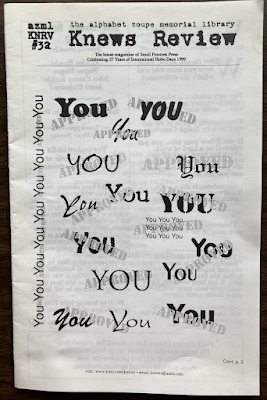 azml
KNRV
#32
the alphabet zoupe memorial library
Knews Review
The house magazine of Small Potatoes Press
Celebrating 27 Years of International Hobo Daze 1999
You You You You You You You You You You
You YOU
You
APPROVED APPROVED
YOU You
APPROVED APPROVED
You You YOU
You You You,
You You You
You You You
APPROVED APPROVED
You You
YOU You
APPROVED APPROVED
You You You
APPROVED APPROVED
Cont. p. 2